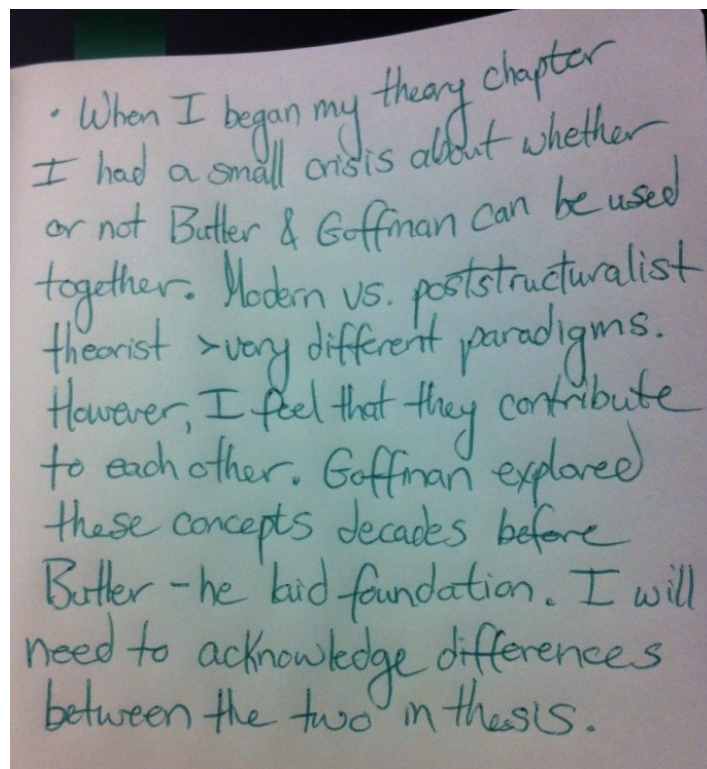 • When I began my theory chapter
I had a small crisis about whether
or not Butler & Goffman can be used
together. Modern vs. poststructuralist
theorist > very different paradigms.
However, I feel that they contribute
to each other. Goffman explored
these concepts decades before
Butler - he laid foundation. I will
need to acknowledge differences
between the two in thesis.